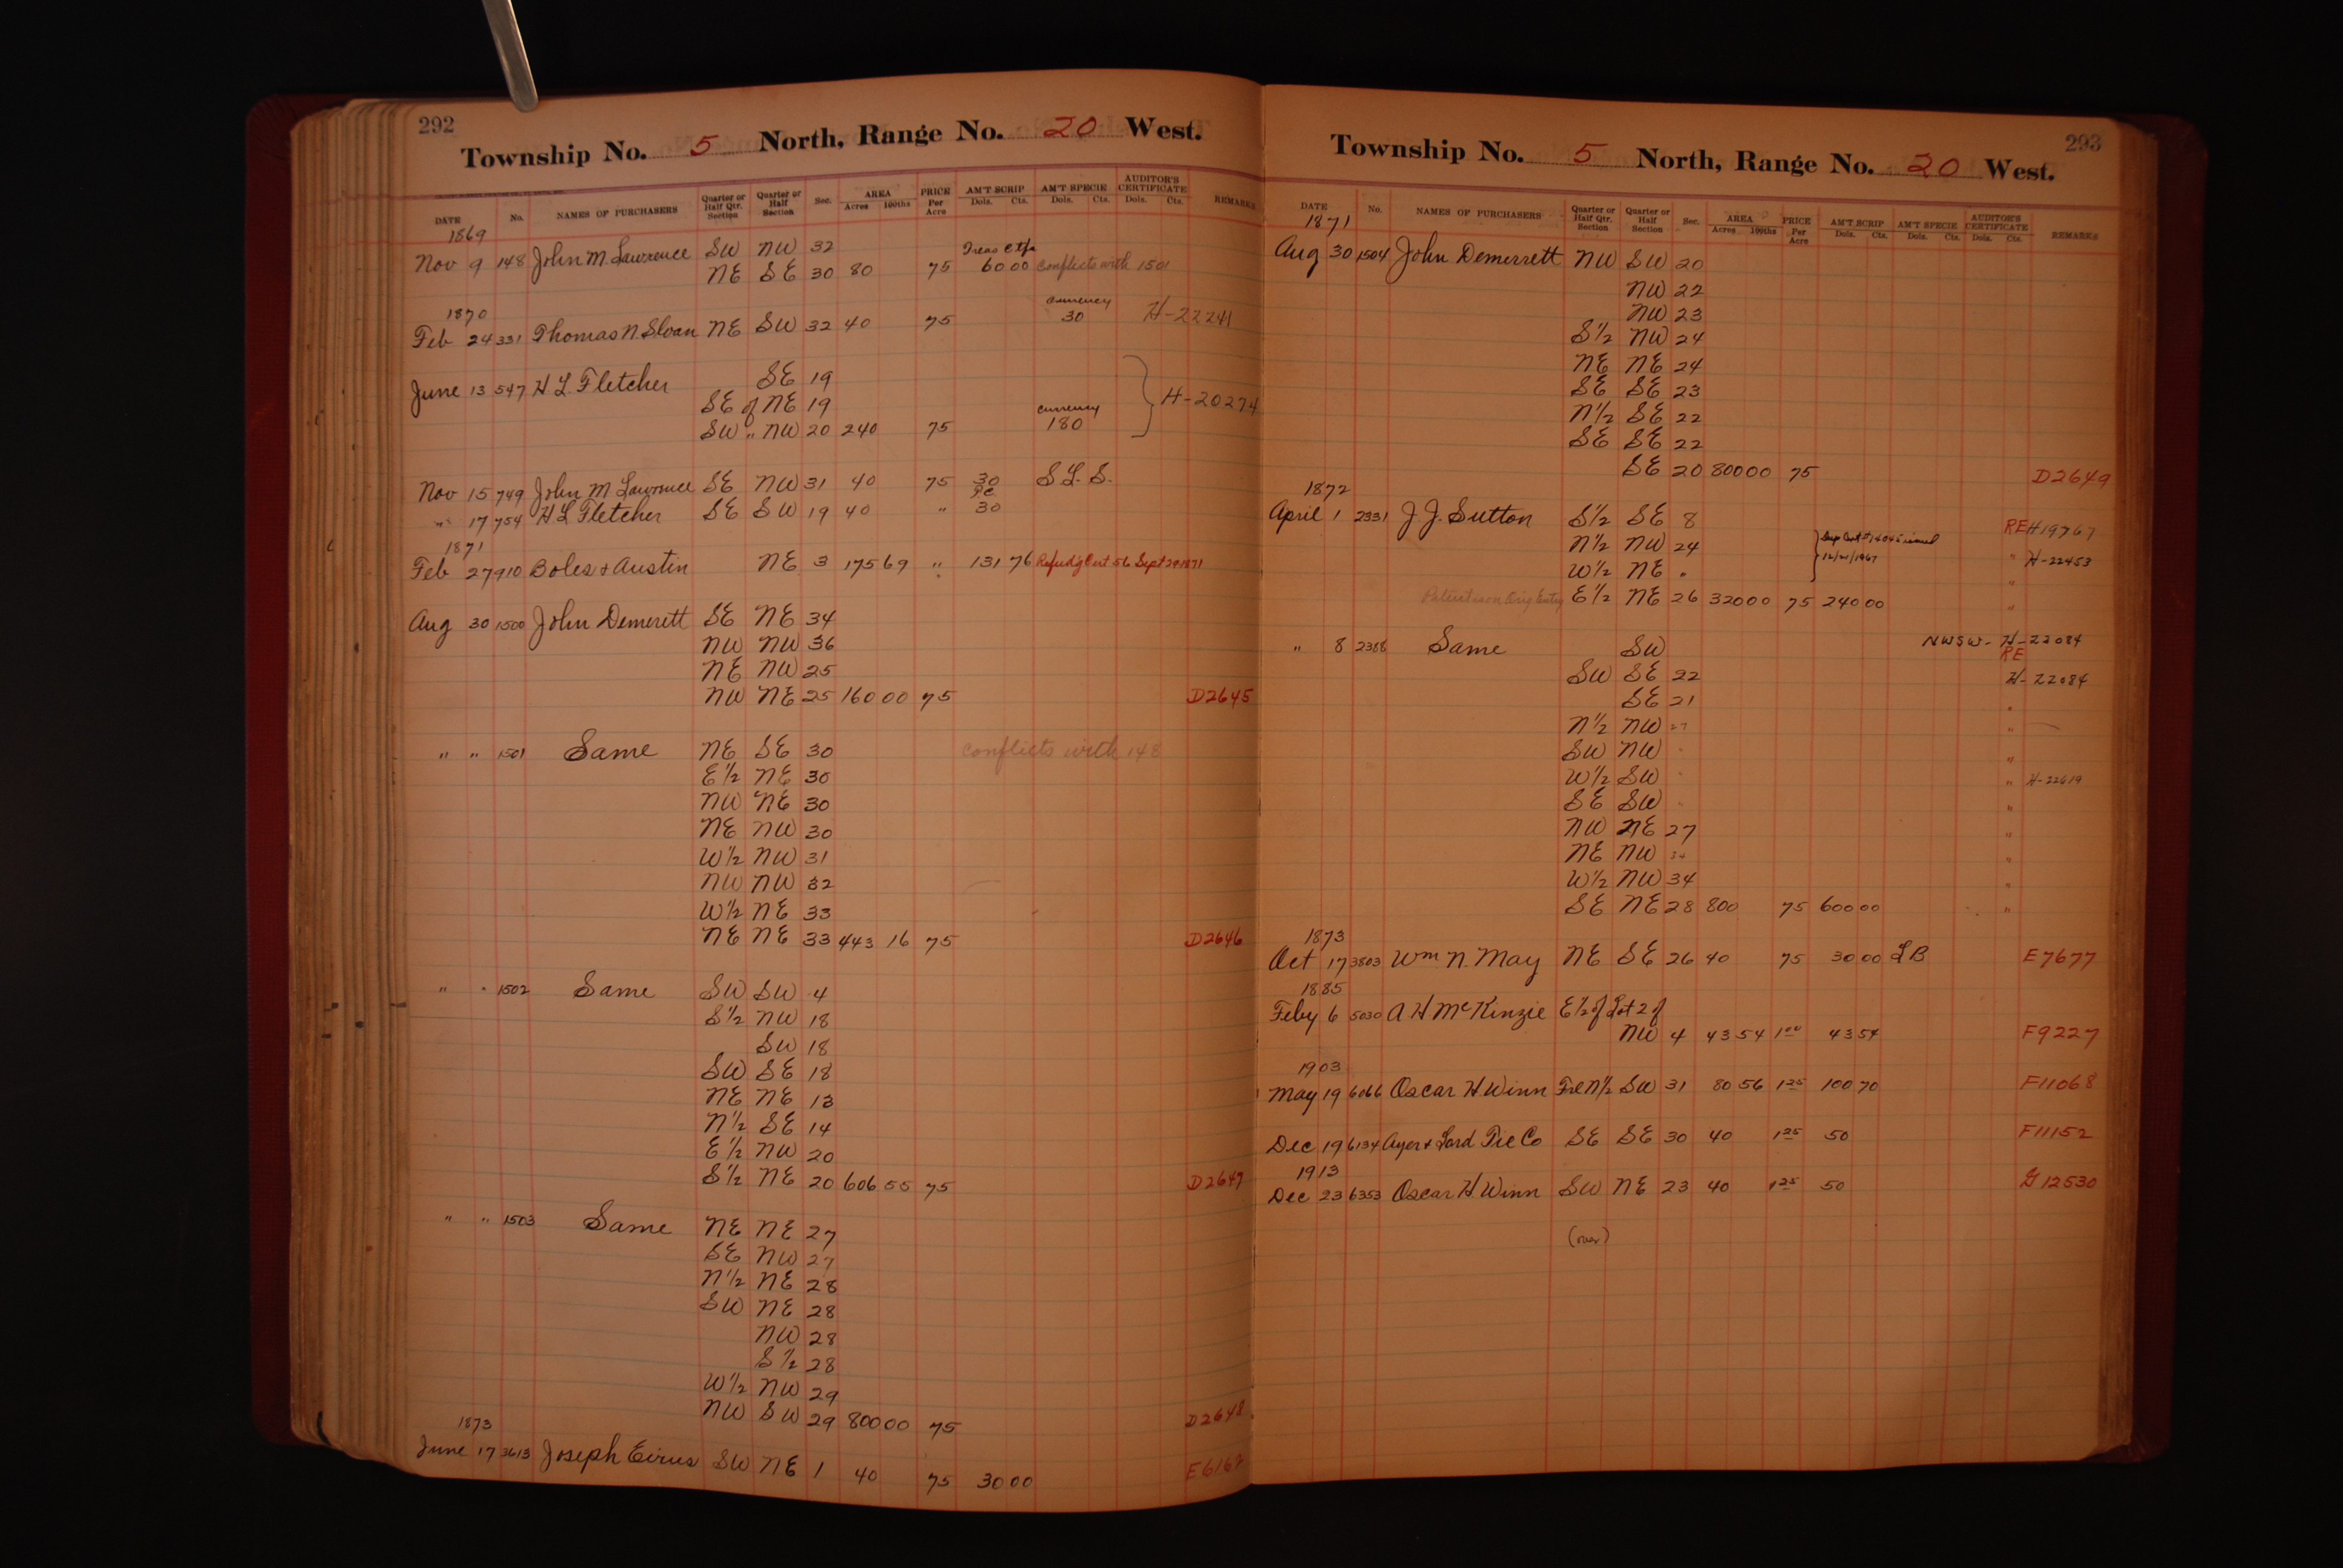 292
Township No. 5 North, Range No. 20 West.
DATE No. NAMES OF PURCHASERS Quarter or Half Qtr. Section Quarter or Half Section Sec. AREA Acres 100ths PRICE Per Acre AM'T SCRIP Dols. Cts. AM'T SPECIE Dols. Cts. AUDITOR'S CERTIFICATE Dols. Cts. REMARKS
1869
Nov 9 148 John M. Lawrence SW NW 32
NE SE 30 80 75 6000 conflicts with 1501
1870 currency
Feb 24 331 Thomas N. Sloan NE SW 32 40 75 30 H-22241
June 13 547 H L Fletcher SE 19
SE of NE 19 currency H-20274
SW " NW 20 240 75 180
Nov 15 749 John M Lawrence SE NW 31 40 75 30 S L. S.
" 17 754 H L Fletcher SE SW 19 40 " 30
1871
Feb 27 910 Boles & Austin NE 3 175 69 " 131 76 Refund'g Cert 56 Sept 29 1871
Aug 30 1500 John Demerett SE NE 34
NW NW 36
NE NW 25
NW NE 25 160 00 75 D2645
" " 1501 Same NE SE 30 conflicts with 148
E 1/2 NE 30
NW NE 30
NE NW 30
W 1/2 NW 31
NW NW 32
W 1/2 NE 33
NE NE 33 443 16 75 D2646
" " 1502 Same SW SW 4
S 1/2 NW 18
SW 18
SW SE 18
NE NE 13
N 1/2 SE 14
E 1/2 NW 20
S 1/2 NE 20 606 55 75 D2647
" " 1503 Same NE NE 27
SE NW 27
N 1/2 NE 28
SW NE 28
NW 28
S 1/2 28
W 1/2 NW 29
NW SW 29 800 00 75 D2648
1873
June 17 3613 Joseph SW NE 1 40 75 30 00
293
Township No. 5 North, Range No. 20 West.
DATE No. NAMES OF PURCHASERS Quarter or Half Qtr. Section Quarter or Half Section Sec. AREA Acres 100ths PRICE Per Acre AM'T SCRIP Dols. Cts. AM'T SPECIE Dols. Cts. AUDITOR'S CERTIFICATE Dols. Cts. REMARKS
1871
Aug 30 1504 John Demerrett NW SW 20
NW 22
NW 23
S 1/2 NW 24
NE NE 24
SE SE 23
N 1/2 SE 22
SE SE 22
SE 20 800 00 75 D2649
1872
April 1 2331 J. J. Sutton S 1/2 SE 8 RE H19767
N 1/2 NW 24 " H-22453
W 1/2 NE " "
E 1/2 NE 26 320 00 75 240 00 "
" 8 2388 Same SW NWSW- H-22084
RE
SW SE 22 H-22084
SE 21 "
N 1/2 NW 27 "
SW NW " "
W 1/2 SW " " H-22619
SE SW " "
NW NE 27 "
NE NW 34 "
W 1/2 NW 34 "
SE NE 28 800 75 600 00 "
1873
Oct 17 3803 Wm N. May NE SE 26 40 75 30 00 L B E7677
1885
Feby 6 5030 A H McKinzie E 1/2 of Lot 2 of
NW 4 43 54 1 00 43 54 F9227
1903
May 19 6066 Oscar H Winn Frl N 1/2 SW 31 80 56 1 25 100 70 F11068
Dec 19 6134 Ayer & Lord Tie Co SE SE 30 40 1 25 50 F11152
1913
Dec 23 6353 Oscar H. Winn SW NE 23 40 1 25 50 G12530
(over)